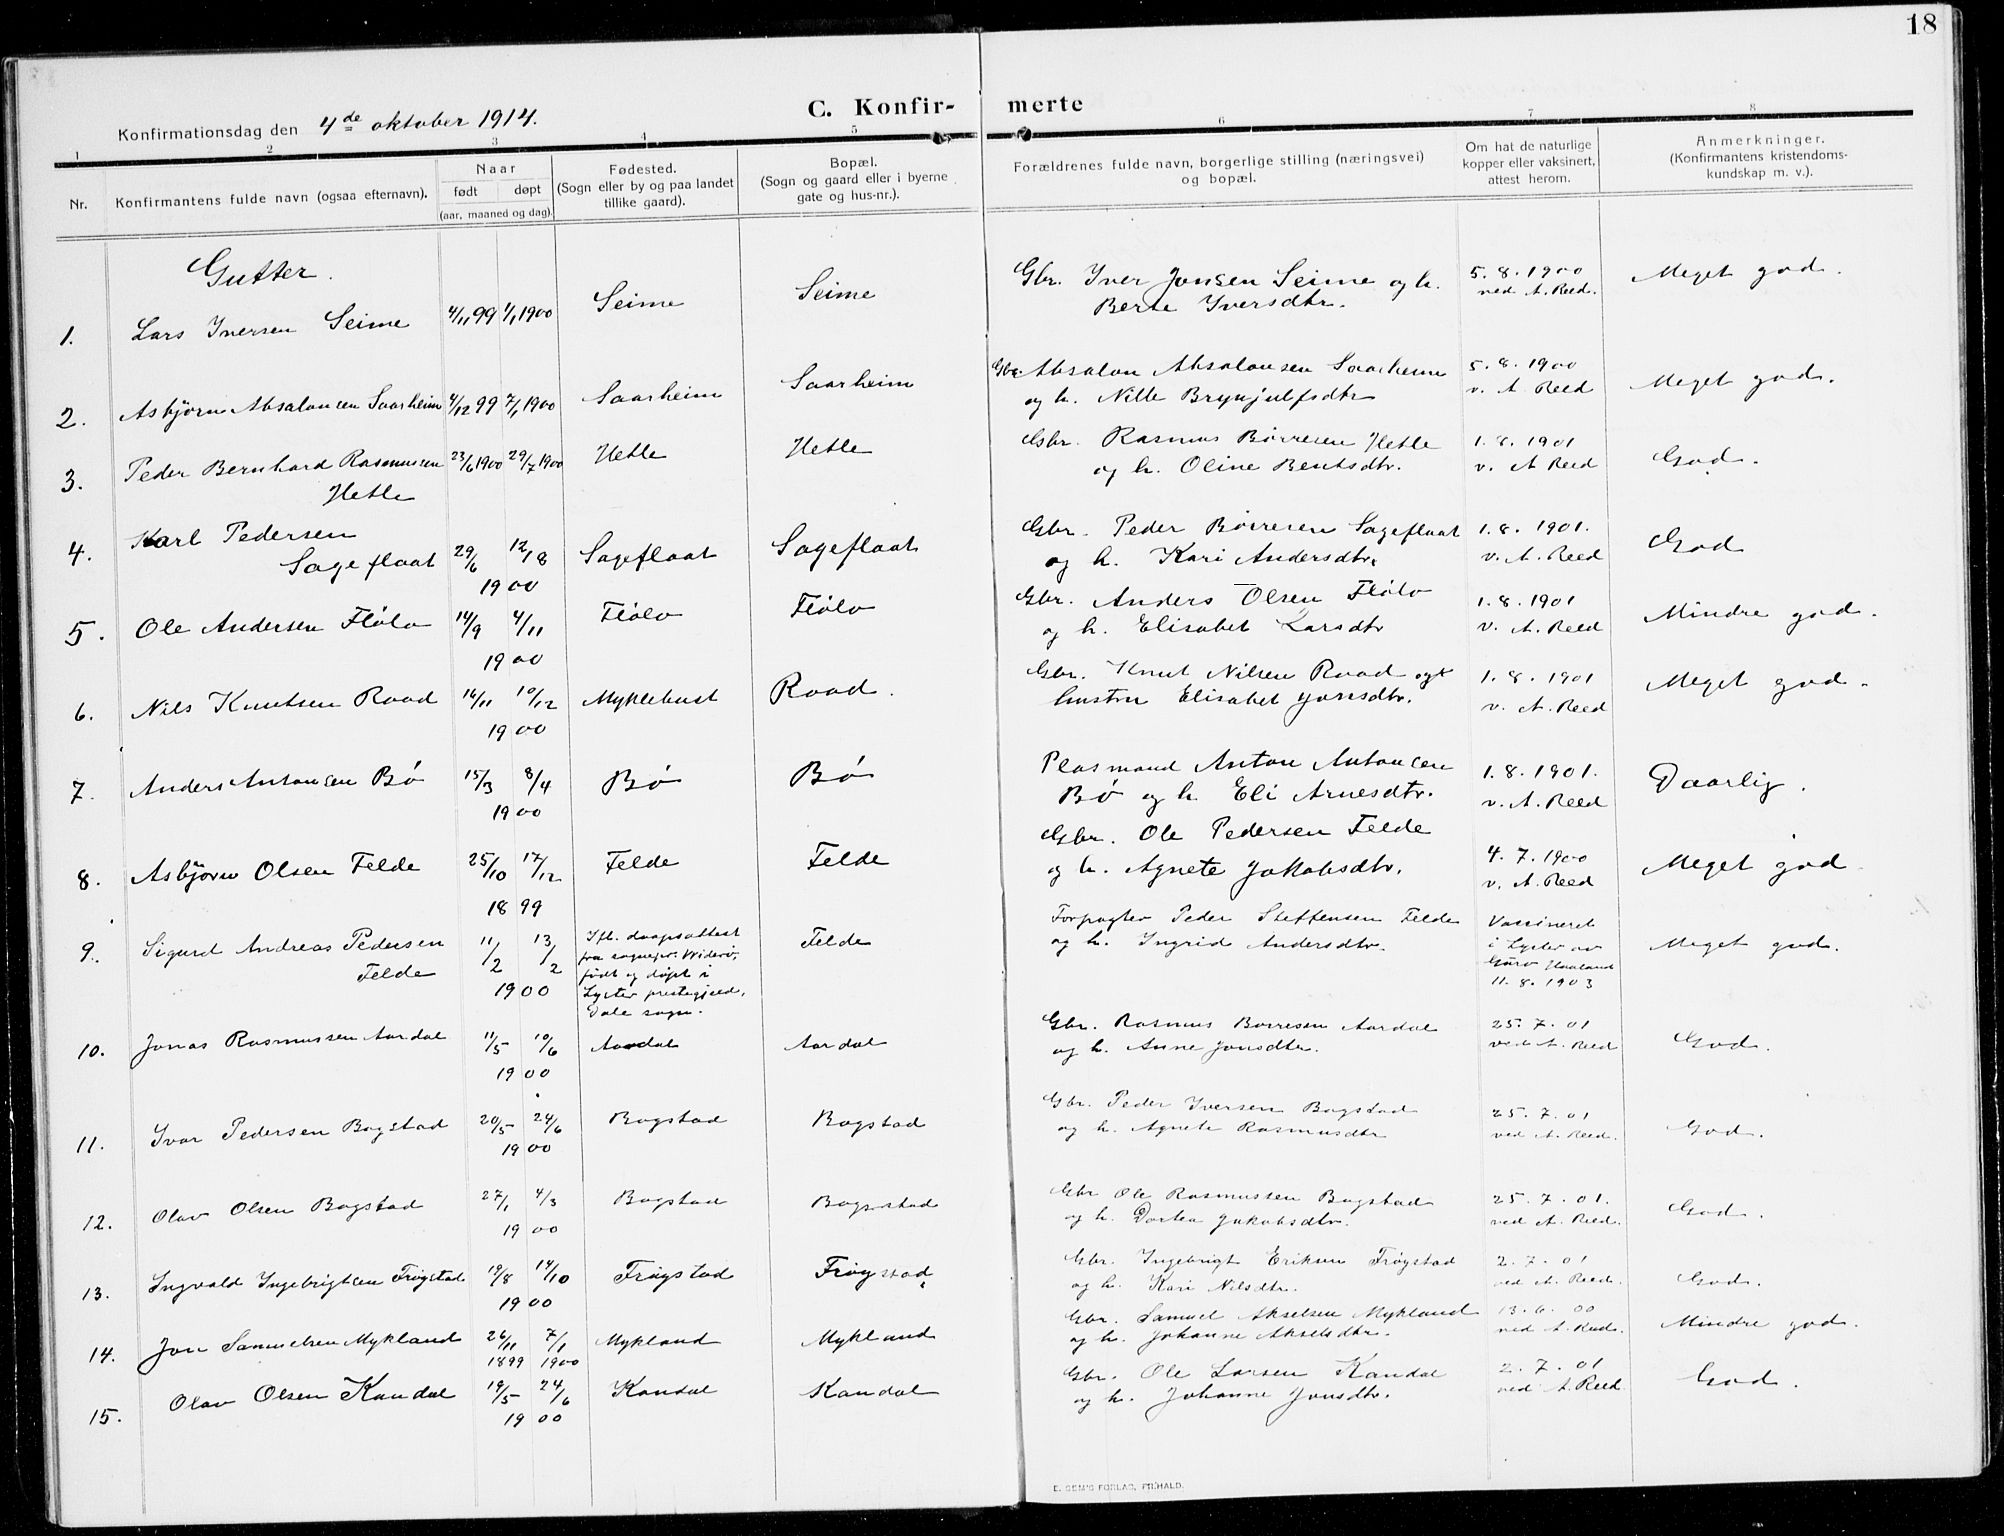 18
C. Konfirmerte
Konfirmationsdag den 4de oktober 1914.
1 2 3 4 5 6 7 8
Nr.
Konfirmantens fulde navn (ogsaa efternavn).
Naar
født døpt
(aar, maaned og dag).
Fødested.
(Sogn eller by og paa landet
tillike gaard).
Bopæl.
(Sogn og gaard eller i byerne
gate og hus-nr.).
Forældrenes fulde navn, borgerlige stilling (næringsvei)
og bopæl.
Om hat de naturlige
kopper eller vaksinert,
attest herom.
Anmerkninger.
(Konfirmantens kristendoms-
kundskap m. v.).
Gutter.
1. Lars Iversen Seime 4/11 99 1/1 1900 Seime Seime Gbr. Iver Jonsen Seime og h. 5.8.1900 Meget god.
Berte Iversdtr. ved A. Reed.
2. Asbjørn Absalonsen Saarheim 4/12 99 7/1 1900 Saarheim Saarheim Gbr. Absalon Absalonsen Saarheim 5.8.1900 Meget god.
og h. Nille Brynjulfsdtr v. A Reed
3. Peder Bernhard Rasmussen 23/6 1900 29/7 1900 Hetle Hetle Gbr. Rasmus Børresen Hetle 1.8.1901 God.
Hetle og h. Oline Bentsdtr. v. A Reed
4. Karl Pedersen Gbr. Peder Børresen Sageflaat 1.8.1901.
Sageflaat 29/6 12/8 Sageflaat Sageflaat og h. Kari Andersdtr. v. A. Reed God
1900
5. Ole Andersen Flølo 14/9 4/11 Flølo Flølo Gbr. Anders Olsen Flølo 1.8.1901 Mindre god.
1900 og h. Elisabet Larsdtr v. A. Reed
6. Nils Knutsen Raad 14/11 10/12 Myklebust Raad. Gbr. Knut Nilsen Raad og 1.8.1901 Meget god.
1900 hustru Elisabet Jonsdtr. v. A. Reed
7. Anders Antonsen Bø 15/3 8/4 Bø Bø Plasmand Anton Antonsen 1.8.1901. Daarlig.
1900 Bø og h. Eli Arnesdtr. v. A. Reed
8. Asbjørn Olsen Felde 25/10 17/12 Felde Felde Gbr. Ole Pedersen Felde 4.7.1900 Meget god
1899 og h. Agnete Jakobsdtr. v. A. Reed
9. Sigurd Andreas Pedersen 11/2 13/2 Ifl. daapsattest Felde Forpagter Peder Steffensen Felde Vaccineret Meget god.
Felde fra sognepr. og h. Ingrid Andersdtr. i Lyster av
1900 født og døpt i Guro Haaland
Lyster prestegjeld, 11.8.1903
Dale sogn.
10. Jonas Rasmussen Aardal 11/5 10/6 Aardal Aardal Gbr. Rasmus Børresen Aardal 25.7.01 God.
1900 og h. Anne Jonsdtr. ved A. Reed
11. Ivar Pedersen Bogstad 20/5 24/6 Bogstad Bogstad Gbr. Peder Iversen Bogstad 25.7.01 God.
1900 og h. Agnete Rasmusdtr ved A. Reed.
12. Olav Olsen Bogstad 27/1 4/3 Bogstad Bogstad Gbr Ole Rasmussen Bogstad 25.7.01. God.
1900 og h. Dortea Jakobsdtr. ved A. Reed.
13. Ingvald Ingebrigtsen Frøystad 19/8 14/10 Frøystad Frøystad Gbr. Ingebrigt Eriksen Frøystad 2.7.01 God.
1900 og h. Kari Nilsdtr. ved A. Reed.
14. Jon Samuelsen Mykland 26/11 7/1 Mykland Mykland Gbr. Samuel Akselsen Mykland 13.6.00 Mindre god.
1899 1900 og h. Johanne Akselsdtr. ved A. Reed.
15. Olav Olsen Kandal 19/5 24/6 Kandal Kandal Gbr. Ole Larsen Kandal 2.7.01 God.
1900 og h. Johanne Jonsdtr. ved A. Reed.
E. SEM'S FORLAG, FR.HALD.